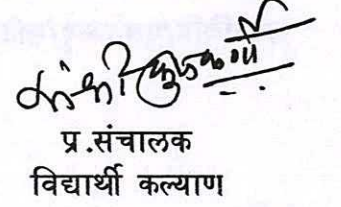 प्र.संचालक
विद्यार्थी कल्याण